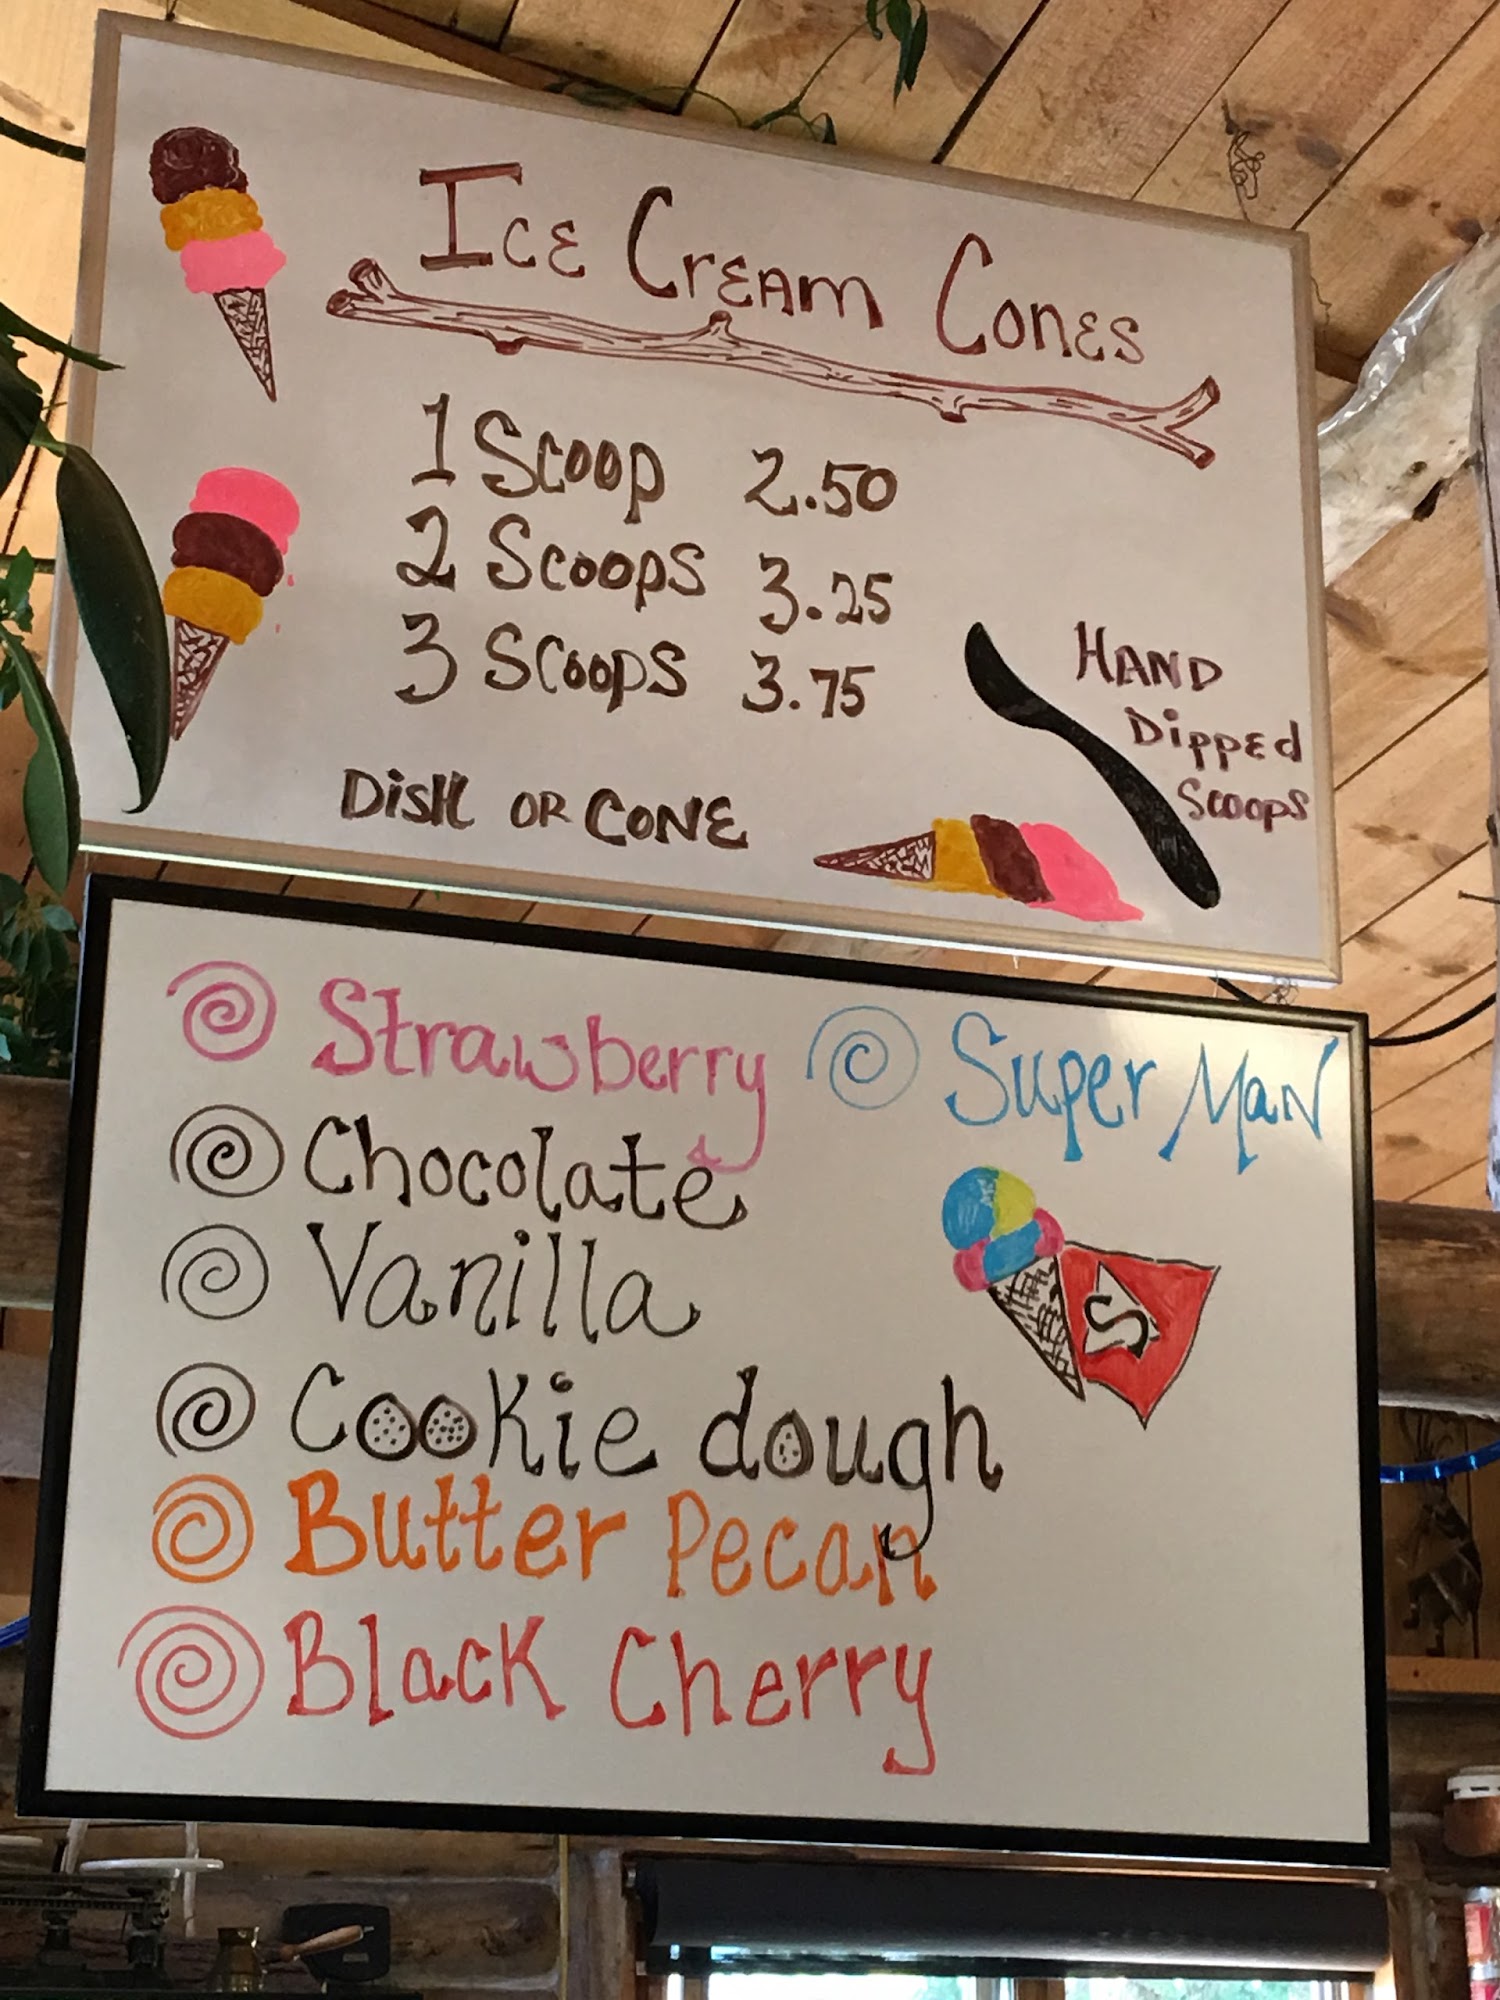 Ice Cream Cones
1 Scoop 2.50
2 Scoops 3.25
3 Scoops 3.75
Dish or Cone
Hand
Dipped
Scoops
Strawberry
Chocolate
Vanilla
Cookie dough
Butter Pecan
Black Cherry
Super Man
S